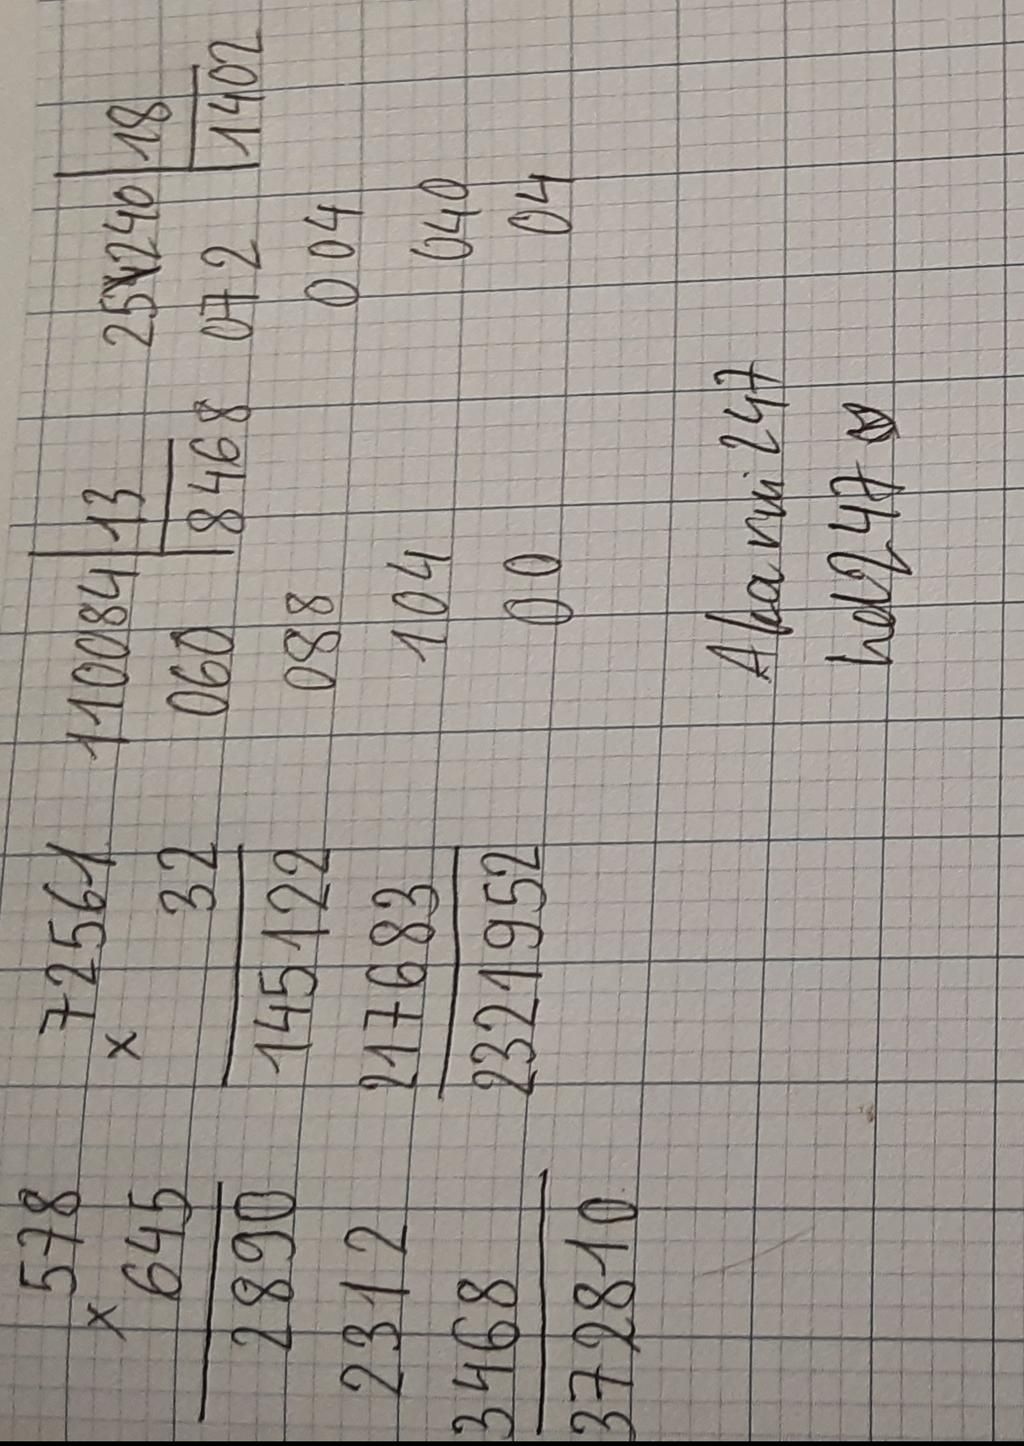 578
x 645
2890
2312
3468
372810
72561
x 32
145122
217683
2321952
110084 13
060 8468
088
104
00
25240 18
072 1402
004
040
04